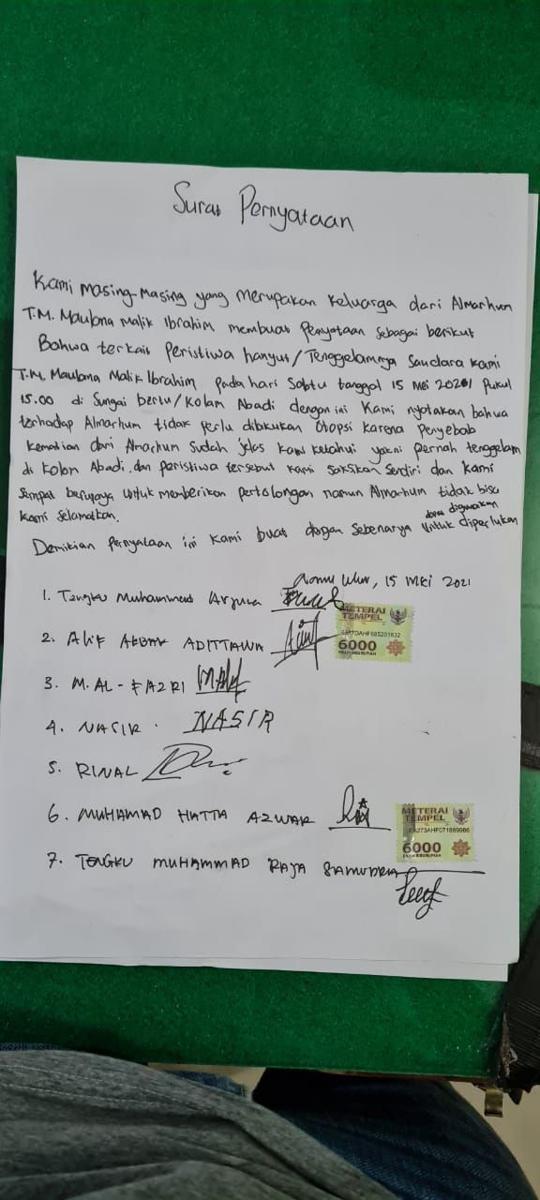 Surat Pernyataan
Kami masing-masing yang merupakan keluarga dari Almarhum
T.M. Maulana Malik Ibrahim membuat Penyataan sebagai berikut
Bahwa terkait Peristiwa hanyut/Tenggelamnya Saudara kami
T.M. Maulana Malik Ibrahim pada hari Sabtu tanggal 15 Mei 2021 Pukul
15.00 di Sungai /Kolam Abadi dengan ini Kami nyatakan bahwa
terhadap Almarhum tidak perlu dilakukan Otopsi karena Penyebab
kematian dari Almarhum Sudah jelas kami ketahui yakni tenggelam
di Kolam Abadi dan peristiwa tersebut kami saksikan Sendiri dan kami
sempat berupaya untuk memberikan pertolongan namun Almarhum tidak bisa
kami selamatkan.
Demikian Pernyataan ini kami buat dengan Sebenarnya dapat digunakan untuk diperlukan
15 Mei 2021
1. Tengku Muhammad Arjuna
METERAI
TEMPEL
6000
2. ALIF AKBAR ADITTAWA
3. M. AL-FAZRI
4. NASIR NASIR
5. RINAL
6. MUHAMAD HATTA AZWAR
METERAI
TEMPEL
6000
7. TENGKU MUHAMMAD RAJA SAMUDRA